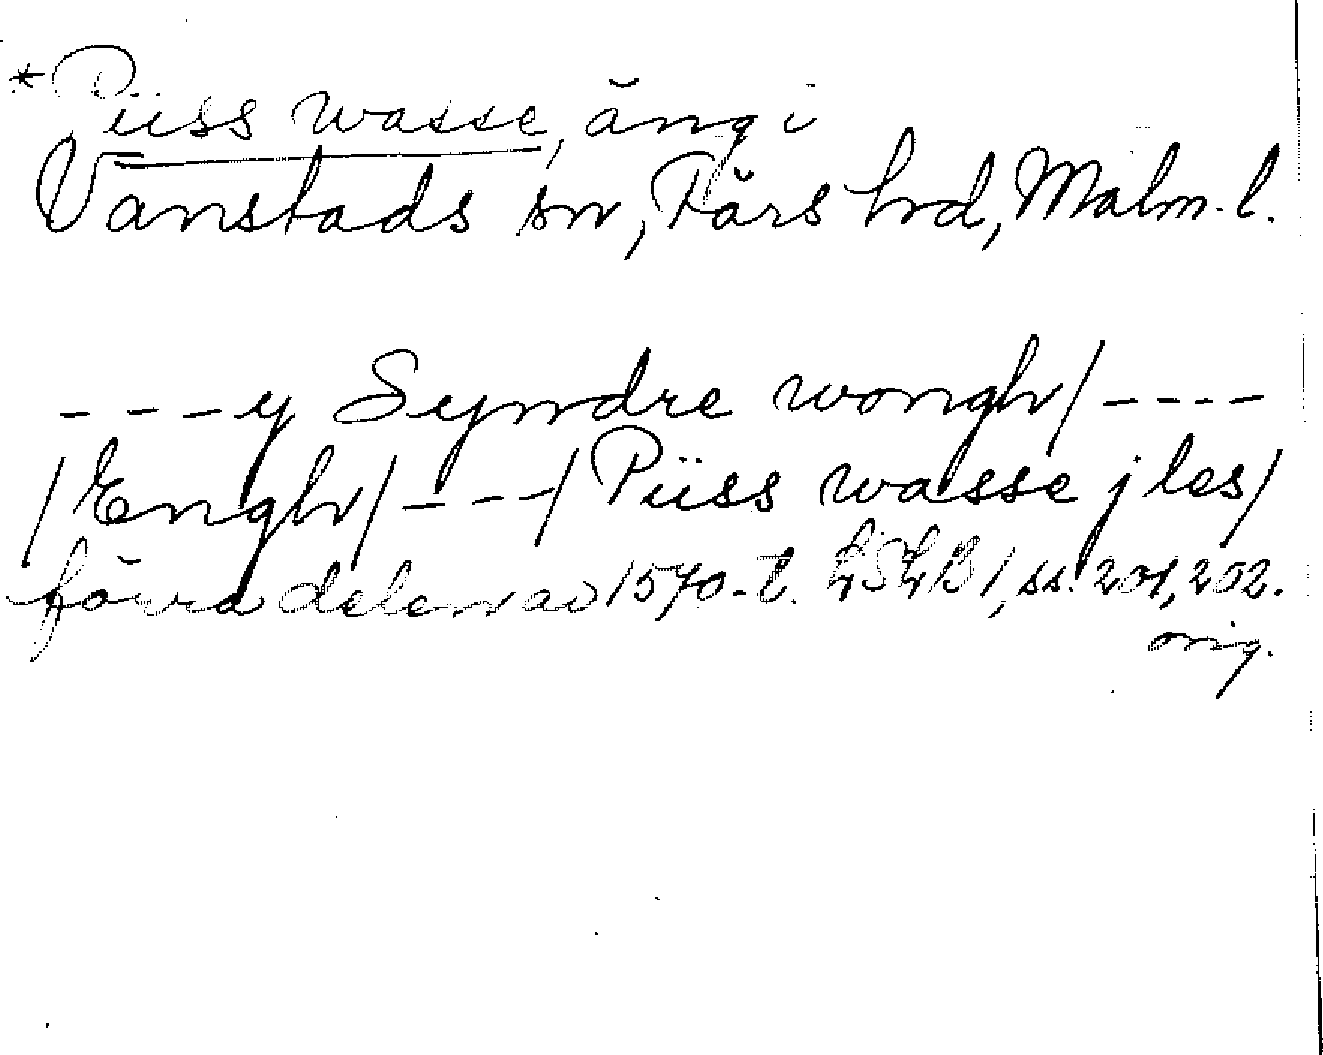 *Püss wasse, äng i
Vanstads sn, Färs hrd, Malm. l.
- - - y Syndre wongh/ - - - -
/Engh/ - - -/ Püss wasse j les/
förra delen av 1570-t. LSLB 1, ss. 201, 202.
orig.